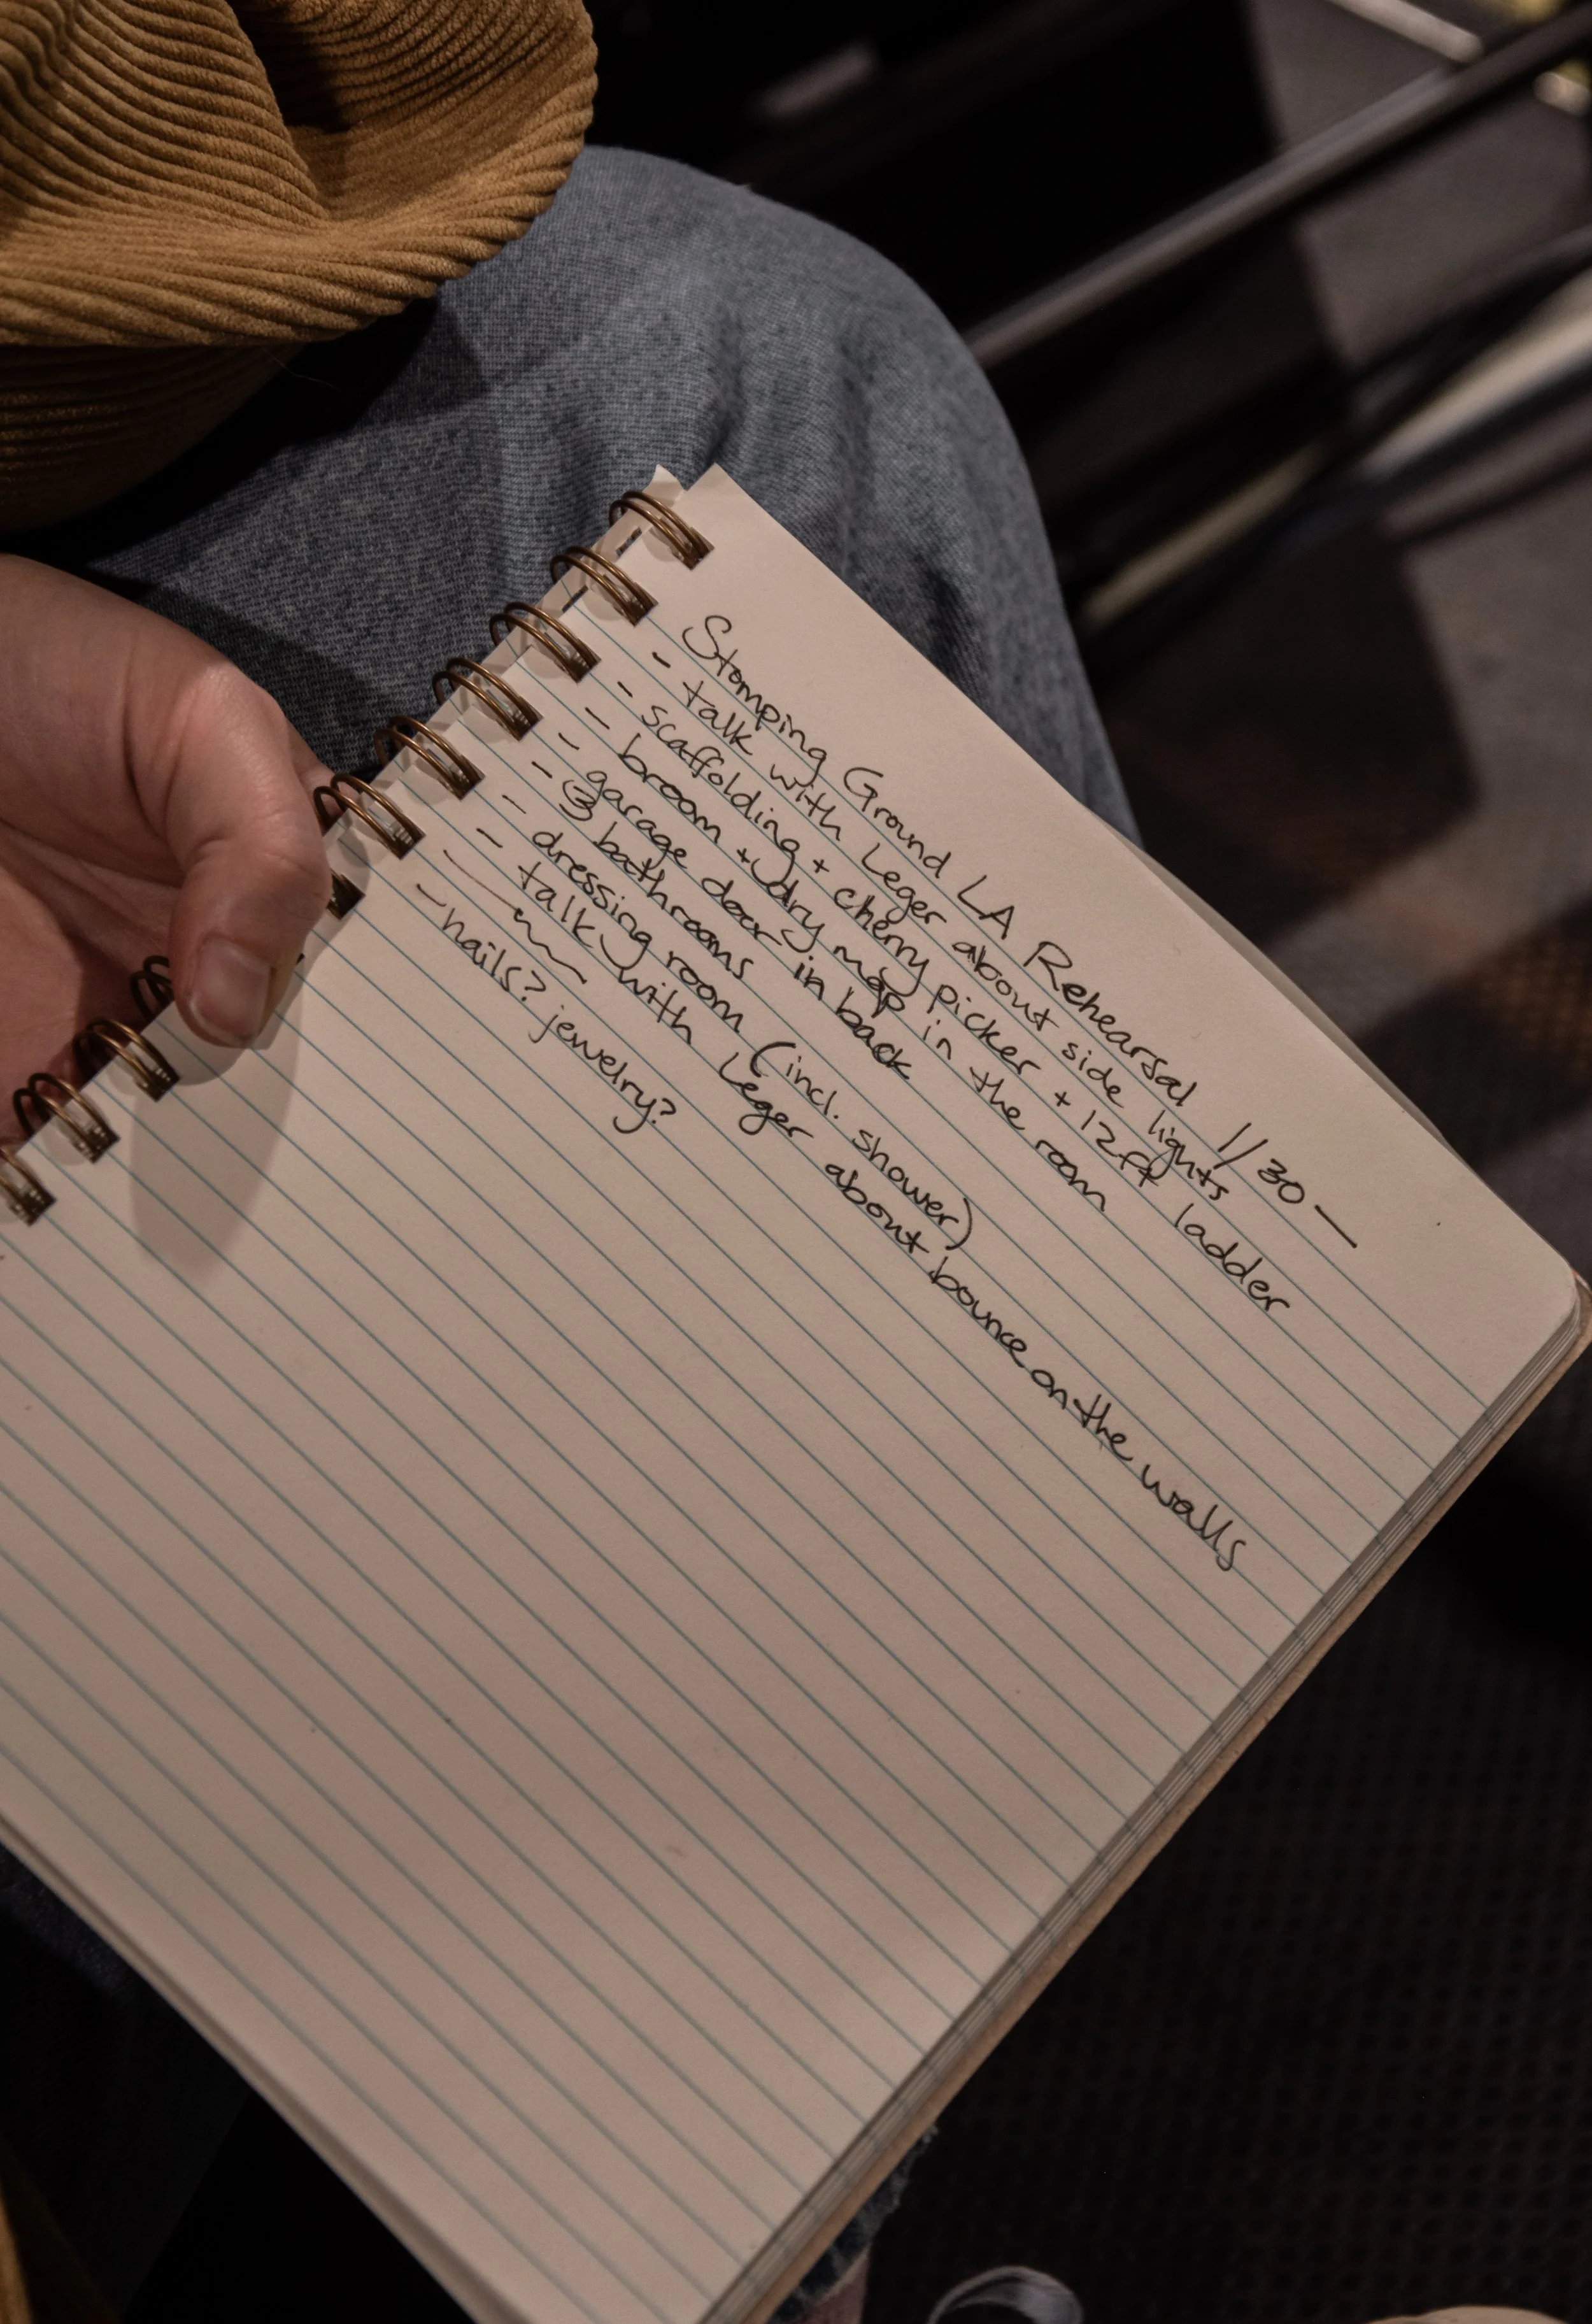 Stomping Ground LA Rehearsal 1/30 —
- talk with Leger about side lights
- scaffolding + cherry picker + 12ft ladder
- broom + dry mop in the room
- garage door in back
- ③ bathrooms
- dressing room (incl. shower)
- talk with Leger about bounce on the walls
- nails? jewelry?